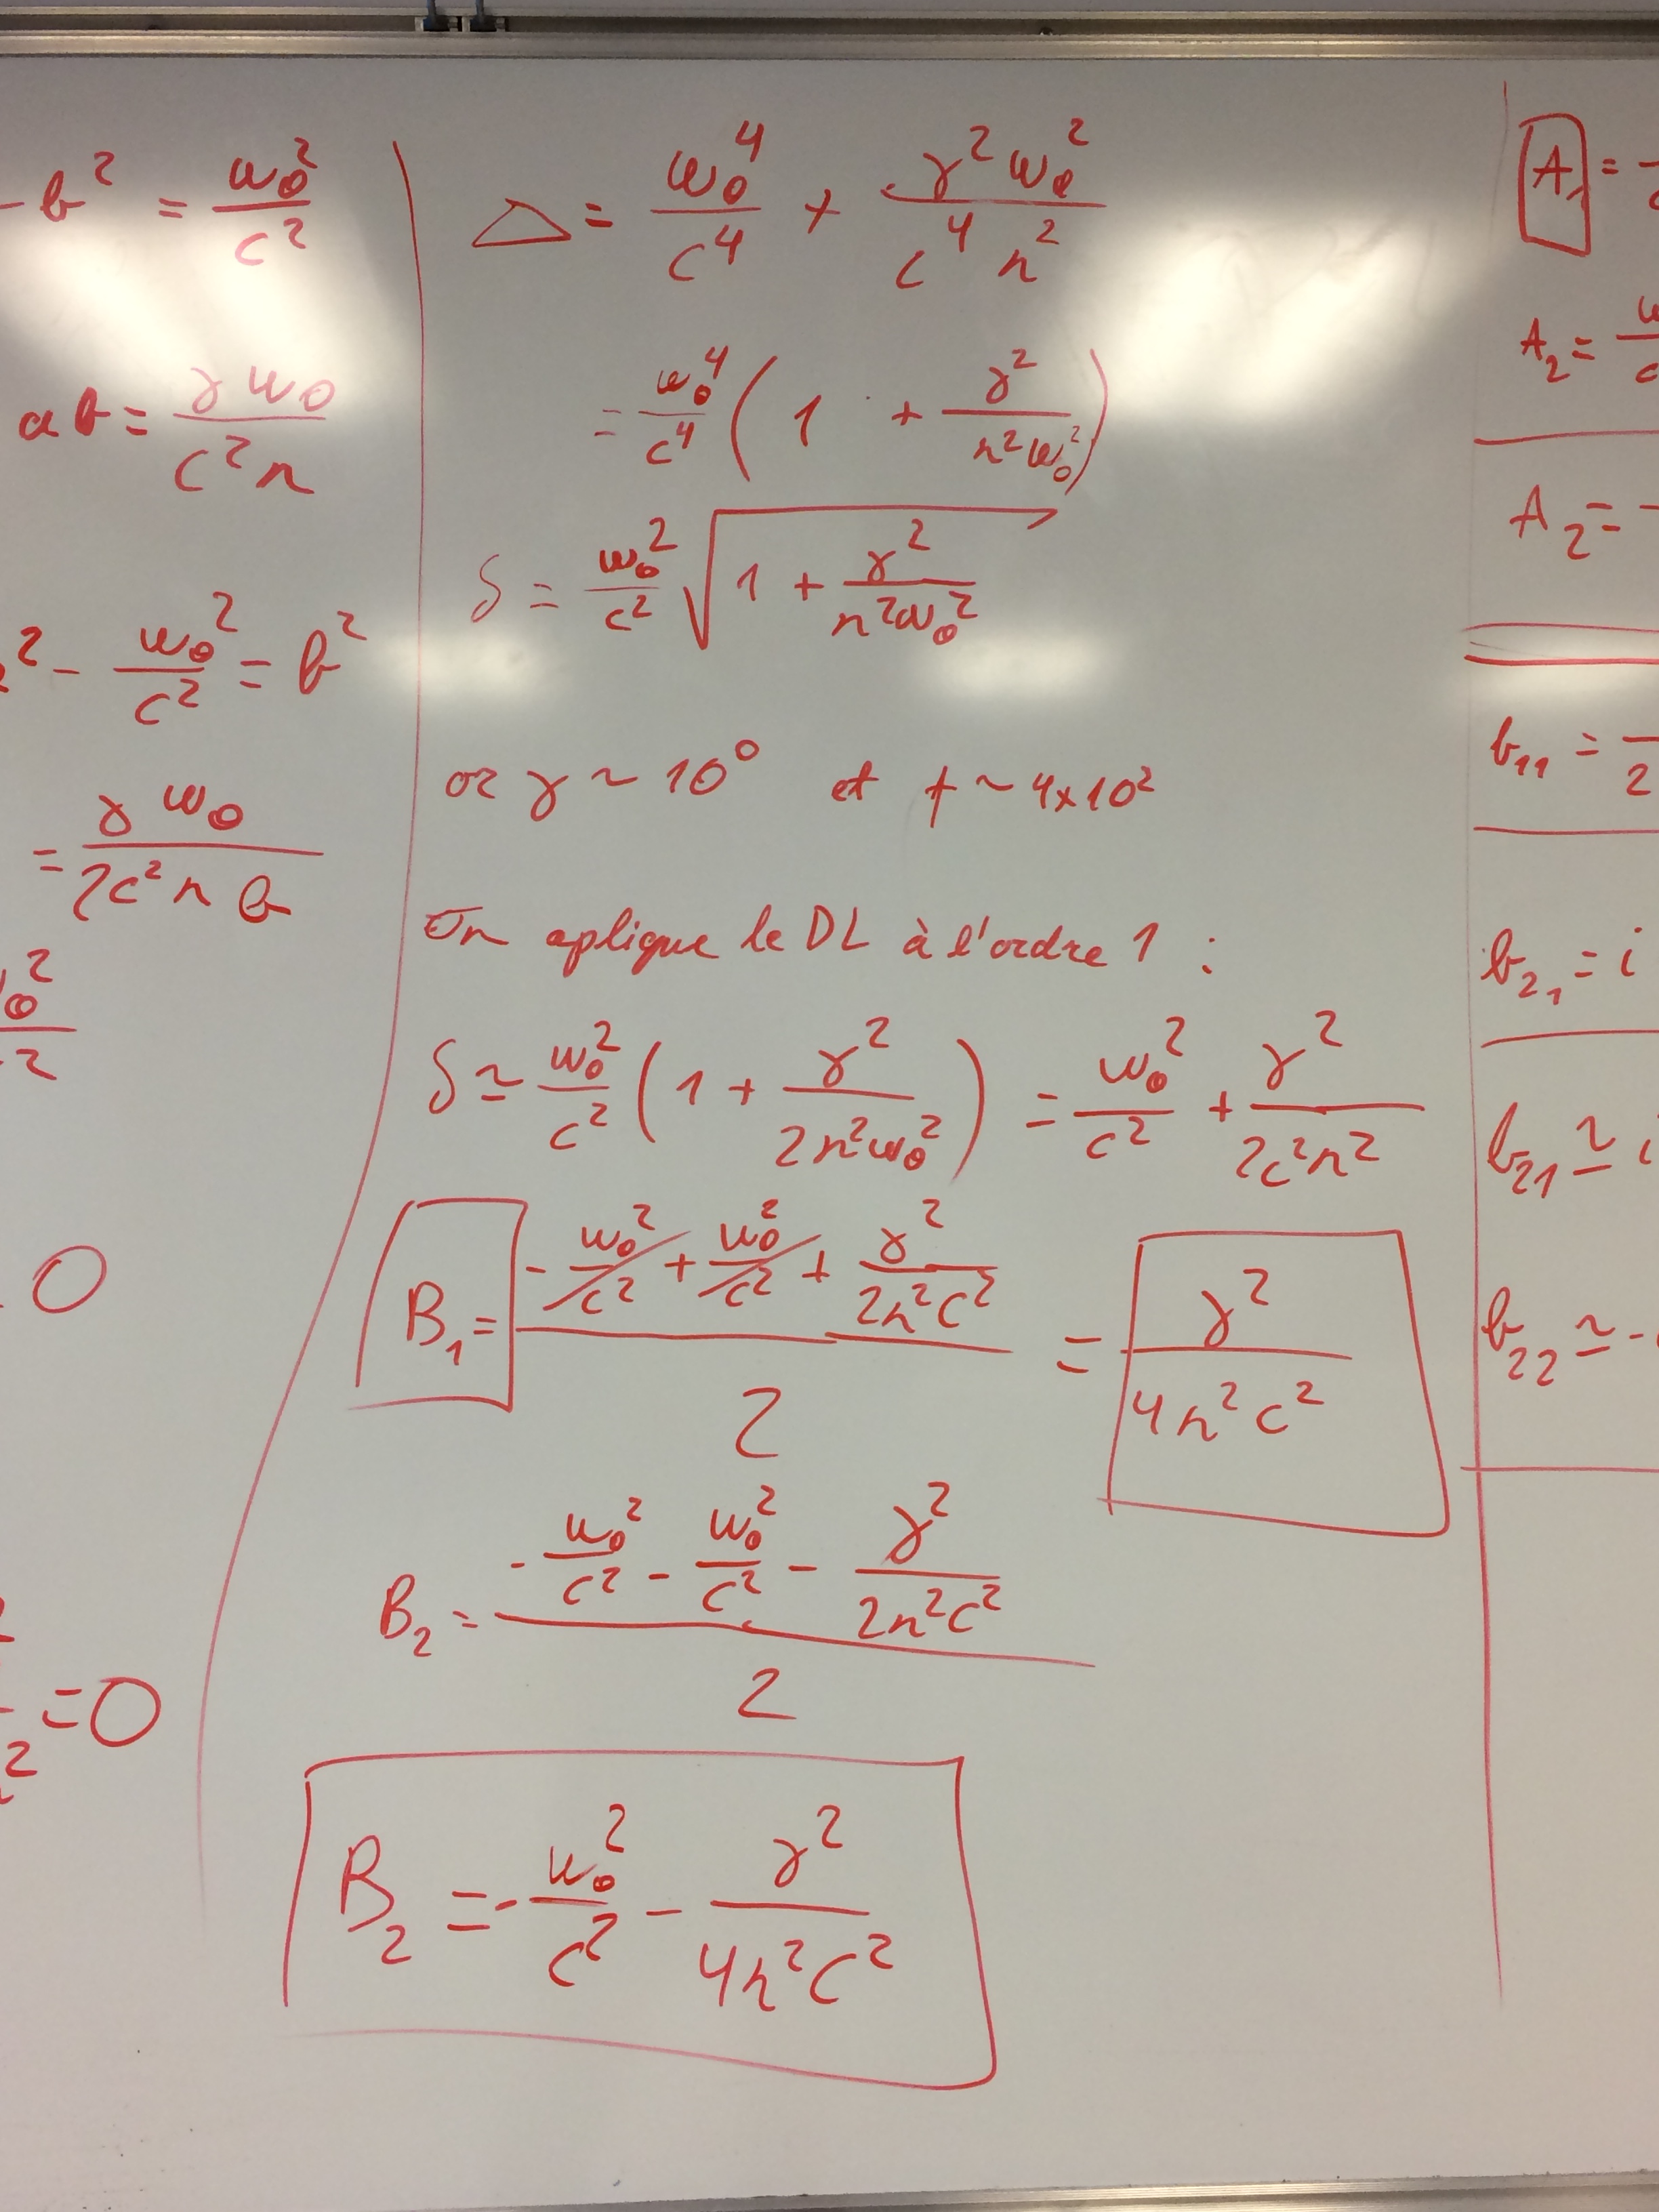 - b² = ω₀²/c²
ab = γω₀/(c²n)
² - ω₀²/c² = b²
= γω₀/(2c²nb)
0
= 0
Δ = ω₀⁴/c⁴ + γ²ω₀²/(c⁴n²)
= ω₀⁴/c⁴ (1 + γ²/(n²ω₀²))
δ = ω₀²/c² √(1 + γ²/(n²ω₀²))
or γ ~ 10⁰ et f ~ 4x10²
On aplique le DL à l'ordre 1 :
δ ≃ ω₀²/c² (1 + γ²/(2n²ω₀²)) = ω₀²/c² + γ²/(2c²n²)
B₁ = (-ω₀²/c² + ω₀²/c² + γ²/(2n²c²))/2 = γ²/(4n²c²)
B₂ = (-ω₀²/c² - ω₀²/c² - γ²/(2n²c²))/2
B₂ = -ω₀²/c² - γ²/(4n²c²)
A₁ =
A₂ =
A₂ =
b₁₁ =
b₂₁ = i
b₂₁ ≃ i
b₂₂ ≃ -